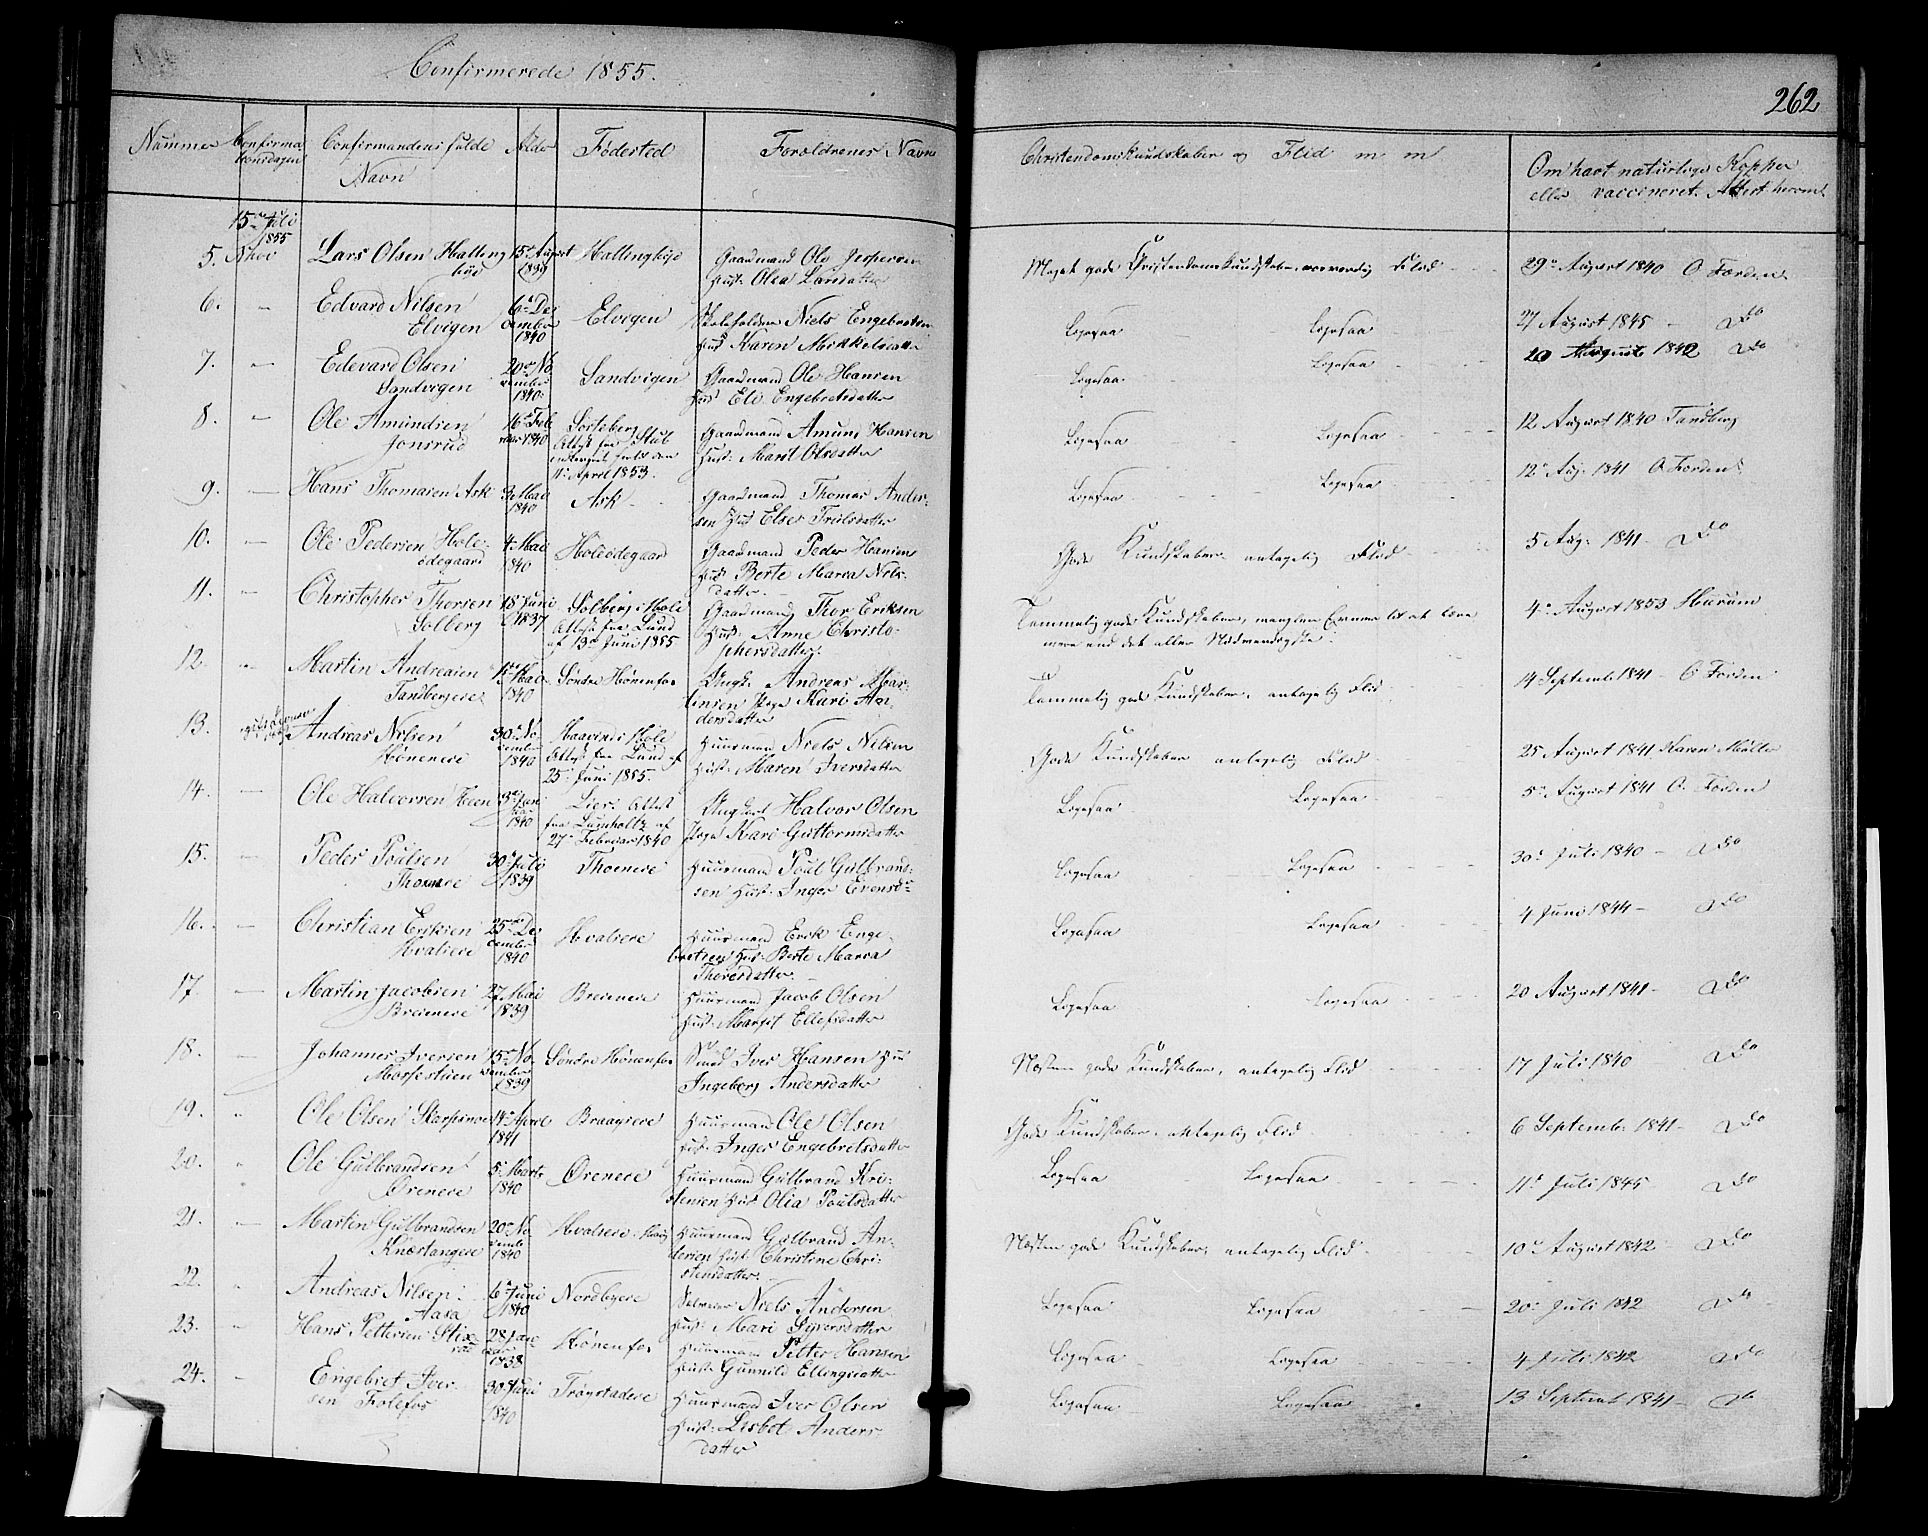 Confirmerede 1855.
262
Nummer
Confirma
tionsdagen
Confirmandens fulde
Navn
Alder
Fødested
Forældrenes Navne
Christendomskundskaber og Flid m m
Om havt naturlige Kopper
eller vaccineret. Attest herom
15de Juli
1855
5.
Lars Olsen Halling
bye
15de August
1839
Hallingbye
Gaardmand Ole Jespersen
Hust: Olea Larsdatter
Meget gode Christendomskundskaber, Flid
29de August 1840 O Forden
6.
Edvard Nilsen
Elvigen
6te De
cember
1840
Elvigen
Skoleholder Niels Engebretsen
Hust Karen Mikkelsdatter
Ligesaa Ligesaa
27 August 1845 Do
7.
Edevard Olsen
Sandvigen
20de No
vember
1840
Sandvigen
Gaardmand Ole Hansen
Hust Eli Engebretsdatter
Ligesaa Ligesaa
20 August 1842 Do
8.
Ole Amundsen
Jonsrud
16de Feb
ruar 1840
Sorteberg
Attest fra Stub
den
11te April 1853.
Gaardmand Amund Hansen
Hust: Marit Olsdatter
Ligesaa Ligesaa
12 August 1840 Tandberg
9.
Hans Thomasen Ask
3de Mai
1840
Ask
Gaardmand Thomas Ander-
sen Hust Else Trulsdatter
Ligesaa Ligesaa
12te Aug. 1841 O Forden
10.
Ole Pedersen Hole-
ødegaard
4de Mai
1840
Holeødegaard
Gaardmand Peder Hansen
Hust Berte Marea Nils-
datter
Gode Kundskaber antagelig Flid
5 Aug: 1841 Do
11.
Christopher Thorsen
Solberg
18de Juni
1837
Solberg i Hole
Attest fra Lund
af 13de Juni 1855
Gaardmand Thor Eriksen
Hust: Anne Christo-
phersdatter
Temmelig gode Kundskaber, mangler Evne til at lære
mere end det aller Nødvendigste
4de August 1853 Hurum
12.
Martin Andreasen
Tandbergeie
1840
Søndre Hønenfos
Ungk: Andreas Mar-
tinsen Pige Kari An-
dersdatter
Temmelig gode Kundskaber, antagelig Flid
14 Septemb: 1841 O Forden
13.
Andreas Nilsen
Høneneie
30te No
vember
1840
i Hole
Attest fra Lund af
25de Juni 1855.
Huusmand Niels Nilsen
Hust: Maren Iversdatter
Gode Kundskaber antagelig Flid
25 August 1841 Karen Møller
14.
Ole Halvorsen Heen
1840
Lier: Attest
fra Lumholtz af
27de Februar 1840
Ungkarl Halvor Olsen
Pige Kari Guttormsdatter
Ligesaa Ligesaa
5te August 1841 O. Forden
15.
Peder Poulsen
30te Juli
1839
Huusmand Poul Gulbrand-
sen Hust: Inger Evensdr
Ligesaa Ligesaa
30te Juli 1840 Do
16.
Christian Eriksen
Hvalseie
25de De
cember
1840
Hvalseie
Huusmand Erik Enge-
bretsen Hus: Berte Marea
Thoresdatter
Ligesaa Ligesaa
4 Juni 1844 Do
17.
Martin Jacobsen
Breieneie
27 Mai
1839
Breieneie
Huusmand Jacob Olsen
Hust: Margit Ellefsdatter
Ligesaa Ligesaa
20 August 1841 Do
18.
Johannes Iversen
15de No
vember
1839
Søndre Hønenfos
Smed Iver Hansen Hu
Ingeborg Andersdatter
Næsten gode Kundskaber, antagelig Flid
17 Juli 1840 Do
19.
Ole Olsen
14de April
1841
Huusmand Ole Olsen
Hus: Inger Engebretsdatter
Gode Kundskaber, antagelig Flid
6 Septemb: 1841 Do
20.
Ole Gulbrandsen
Øreneie
5te Marts
1840
Øreneie
Huusmand Gulbrand Kri-
stensen Hus Olia Poulsdatter
Ligesaa Ligesaa
11te Juli 1845 Do
21.
Martin Gulbrandsen
Knæstangeie
20de No
vemb
1840
Hvalseie
Huusmand Gulbrand An-
dersen Hust: Christine Chri-
stensdatter
Næsten gode Kundskaber, antagelig Flid
10de August 1842 Do
22.
Andreas Nilsen
Aasa
6te Juni
1840
Nordbyeie
Niels Andersen
Hust: Mari Syversdatter
Ligesaa Ligesaa
20de Juli 1842 Do
23.
Hans Pettersen Stix
rud
28 Jan
uar
1838
Hønenfos
Huusmand Petter Hansen
Hust: Gunnild Ellingsdatter
Ligesaa Ligesaa
4 Juli 1842 Do
24.
Engebret Iver-
sen Folefos
30te Juni
1840
Trøgstadeie
Huusmand Iver Olsen
Hust: Lisbet Anders
datter
Ligesaa Ligesaa
13 Septemb 1841 Do